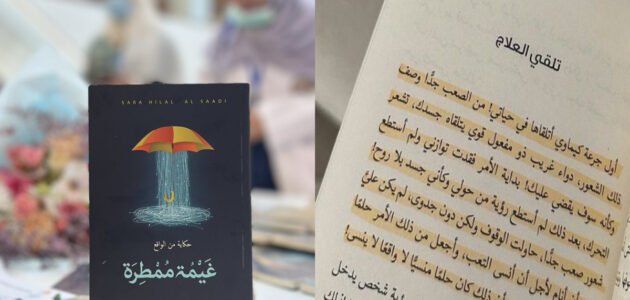 SARA HILAL AL SAADI
حكاية من الواقع
غَيْمَة مُمْطِرَة
تلقي العلاج
أول جرعة كيماوي أتلقاها في حياتي! من الصعب جدًّا وصف
ذلك الشعور، دواء غريب ذو مفعول قوي يتلقاه جسدك، تشعر
وكأنه سوف يقضي عليك! بداية الأمر فقدت توازني ولم أستطع
التحرك، بعد ذلك لم أستطع رؤية من حولي وكأني جسد بلا روح!
شعور صعب جدًّا، حاولت الوقوف ولكن دون جدوى، لم يكن عليَّ
لأجل أن أنسى التعب، وأجعل من ذلك الأمر حلمًا
ذلك كان حلمًا منسيًّا لا واقعًا لا ينسى!
شخص يدخل